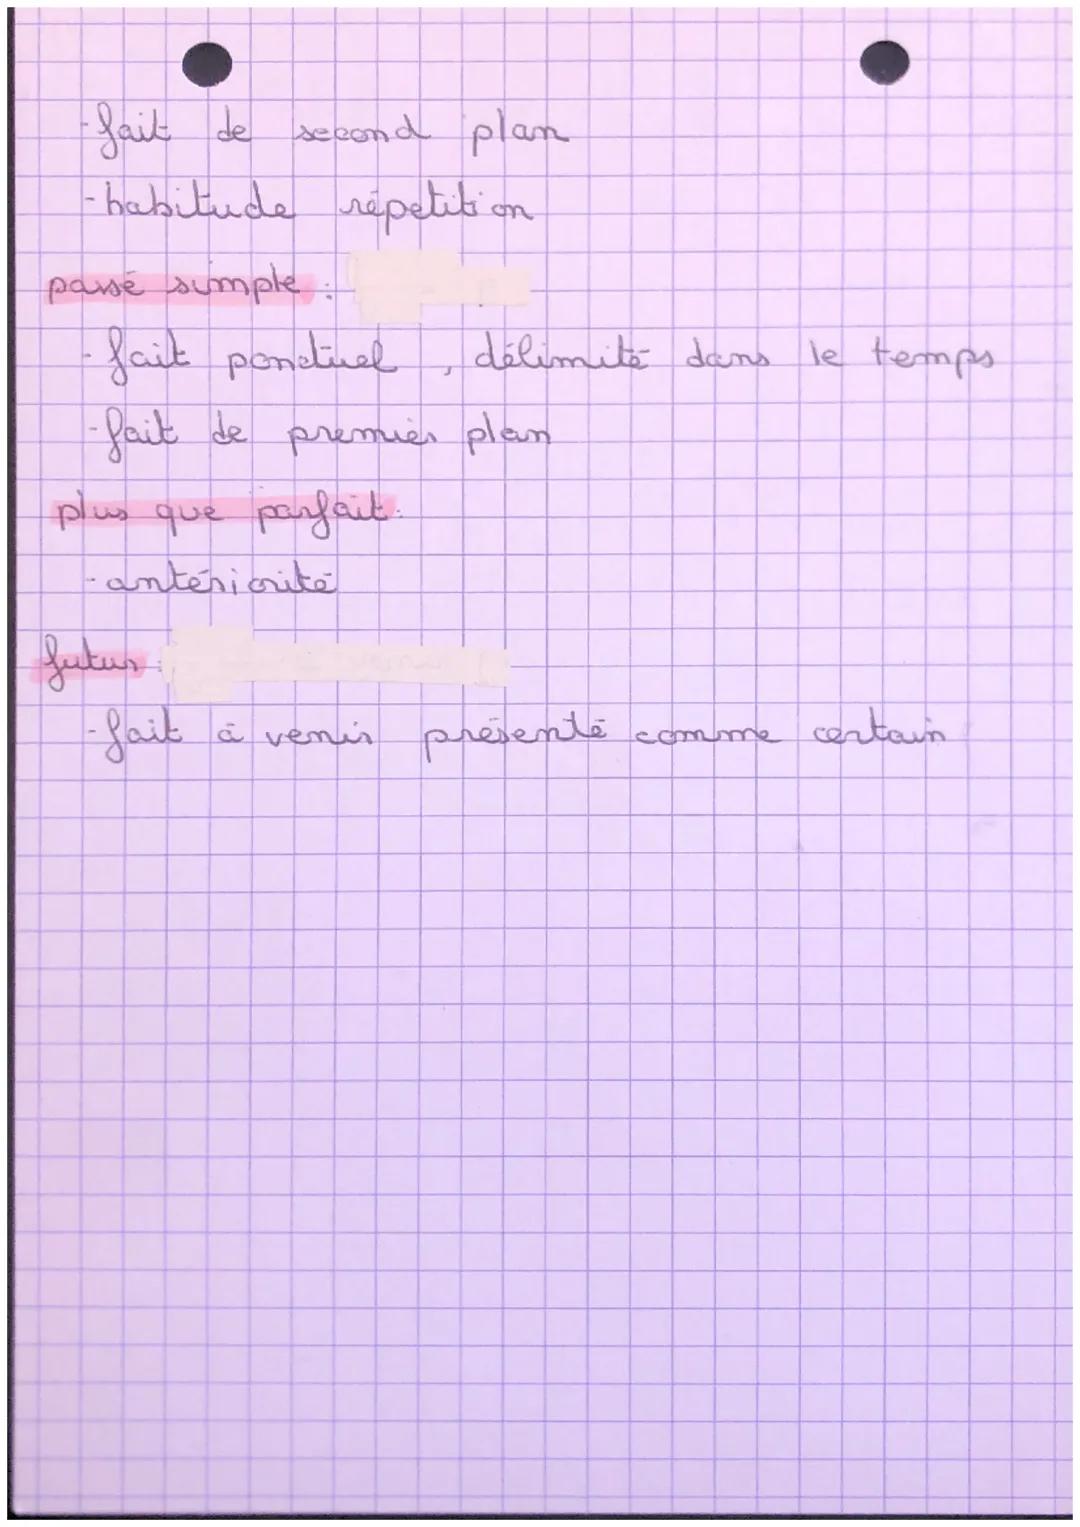 -fait de second plan
-habitude répetition
passé simple :
-fait ponctuel, délimité dans le temps
-fait de premier plan
plus que parfait:
-antériorité
futur :
-fait à venir présenté comme certain